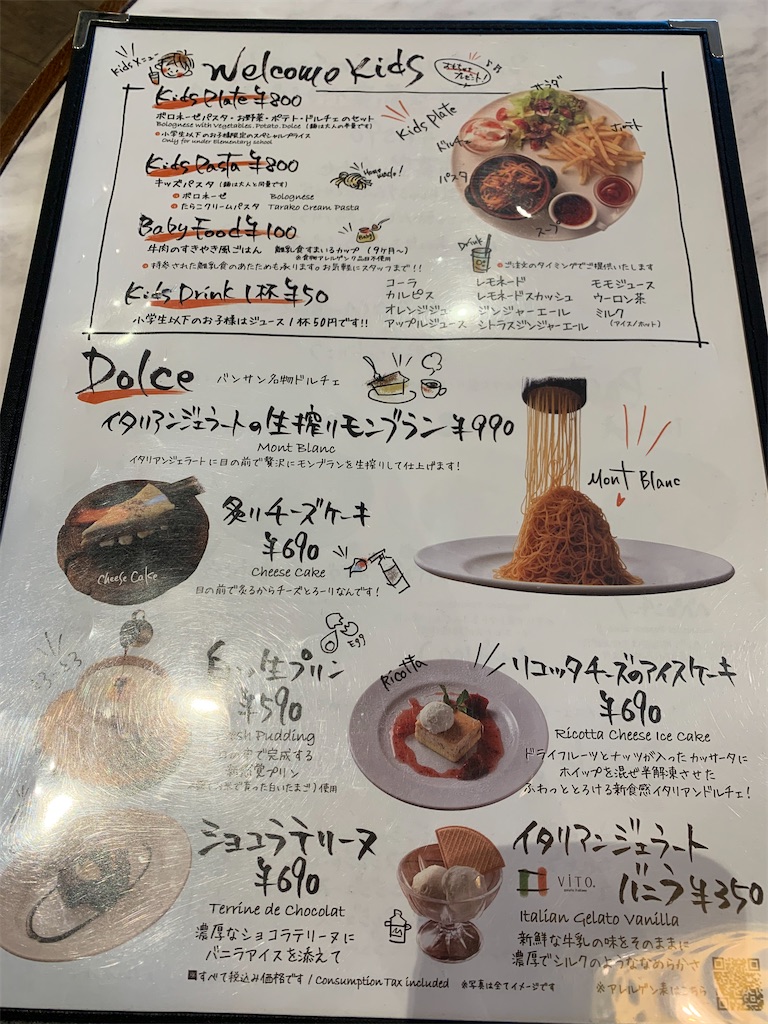 Kidsメニュー
Welcome Kids
Kids Plate ¥800
ボロネーゼパスタ・お野菜・ポテト・ドルチェのセット
Bolognese with Vegetables. Potato. Dolce (麺は大人の半量です)
小学生以下のお子様限定のスペシャルプライス
Only for under Elementary school
Kids Plate
サラダ
ポテト
ドルチェ
パスタ
スープ
Kids Pasta ¥800
キッズパスタ (麺は大人と同量です)
ボロネーゼ Bolognese
たらこクリームパスタ Tarako Cream Pasta
Baby Food ¥100
牛肉のすきやき風ごはん 離乳食すまいるカップ (9ヶ月〜)
※食物アレルゲン7品目不使用
持参された離乳食のあたためも承ります。お気軽にスタッフまで!!
Kids Drink 1杯 ¥50
小学生以下のお子様はジュース1杯50円です!!
Drink
ご注文のタイミングでご提供いたします
コーラ レモネード モモジュース
カルピス レモネードスカッシュ ウーロン茶
オレンジジュース ジンジャーエール ミルク
アップルジュース シトラスジンジャーエール (アイス/ホット)
Dolce バンサン名物ドルチェ
イタリアンジェラートの生搾りモンブラン ¥990
Mont Blanc
イタリアンジェラートに目の前で贅沢にモンブランを生搾りして仕上げます!
Mont Blanc
炙りチーズケーキ
¥690
Cheese Cake
目の前で炙るからチーズとろーりなんです!
Cheese Cake
Egg
生プリン
¥590
Pudding
中で完成する
プリン
使用
Ricotta
リコッタチーズのアイスケーキ
¥690
Ricotta Cheese Ice Cake
ドライフルーツとナッツが入ったカッサータに
ホイップを混ぜ半解凍させた
ふわっととろける新食感イタリアンドルチェ!
ショコラテリーヌ
¥690
Terrine de Chocolat
濃厚なショコラテリーヌに
バニラアイスを添えて
イタリアンジェラート
VITO. バニラ ¥350
Italian Gelato Vanilla
新鮮な牛乳の味をそのままに
濃厚でシルクのようななめらかさ
すべて税込み価格です / Consumption Tax included ※写真は全てイメージです
※アレルゲン表はこちら